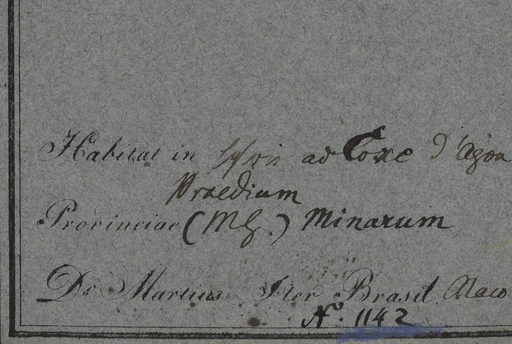 Habitat in sylvis ad Coxe d'agoa
Praedium
Provinciae (MG.) Minarum
Dr Martius Iter Brasil.
N°. 1142